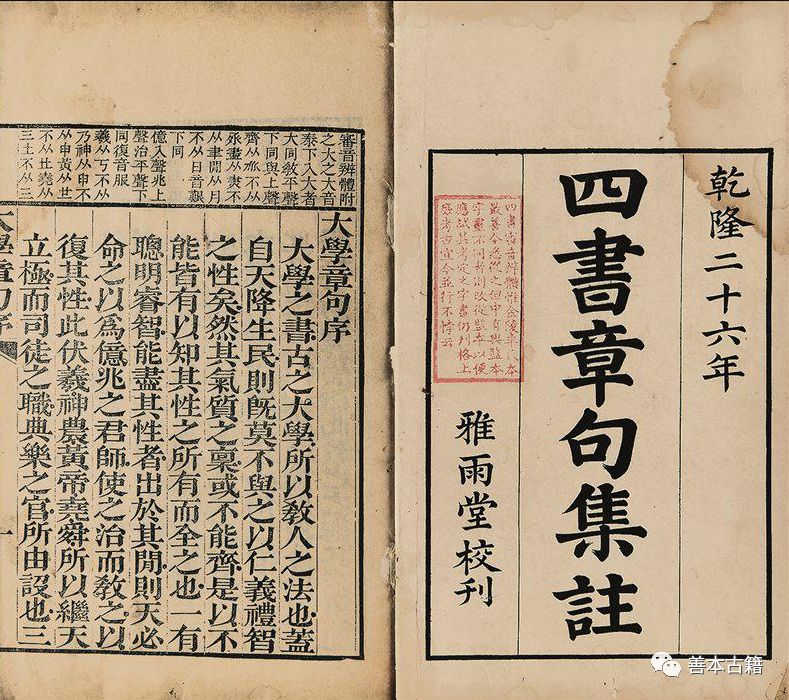 乾隆二十六年
四書章句集註
四書審音辨體惟金陵本
最善今悉從之但中有與監本
字畫不同者則改從監本以便
應試其考定之字畫仍列格上
庶考古宜今並行不悖云
雅雨堂校刊
審音辨體附
之大之大音
泰下入大者
大同敎平聲
下同與上聲
齊从不从
盡从不
从聿閒从月
不从日音觀
下同
億入聲兆上
聲治平聲下
同復音服
羲从丂不从
乃神从申不
从申黃从世
不从丗堯从
三土不从三
大學章句序
大學之書古之大學所以敎人之法也蓋
自天降生民則旣莫不與之以仁義禮智
之性矣然其氣質之稟或不能齊是以不
能皆有以知其性之所有而全之也一有
聰明睿智能盡其性者出於其閒則天必
命之以爲億兆之君師使之治而敎之以
復其性此伏羲神農黃帝堯舜所以繼天
立極而司徒之職典樂之官所由設也三
大學章句序
一
善本古籍